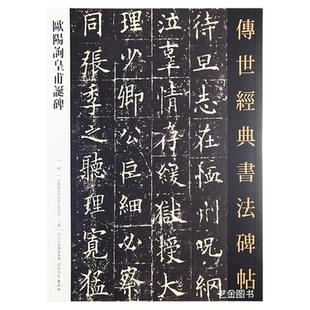 傳世經典書法碑帖
待旦志在恤刑咒網
泣辜情存緩獄授大
理少卿公巨細必察
同張季之聽理寬猛
歐陽詢皇甫誕碑
艺金图书